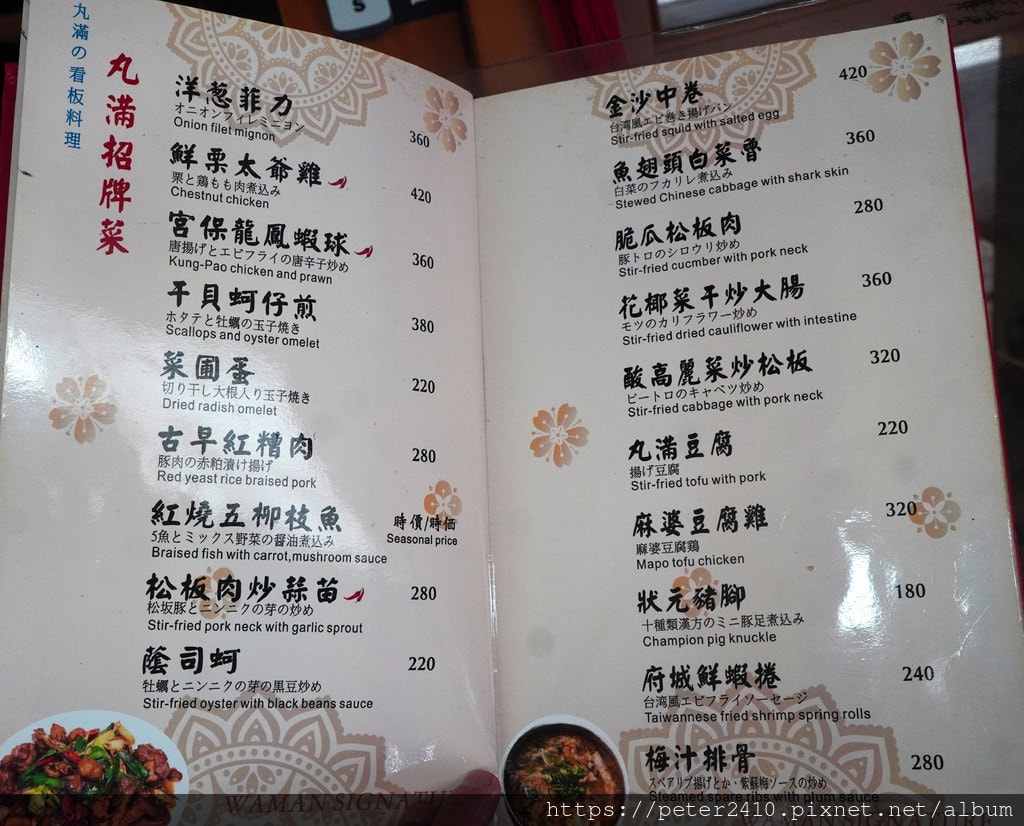 丸滿の看板料理
丸滿招牌菜
洋葱菲力
オニオンフィレミニヨン
Onion filet mignon
360
鮮栗太爺雞
栗と鶏もも肉煮込み
Chestnut chicken
420
宮保龍鳳蝦球
唐揚げとエビフライの唐辛子炒め
Kung-Pao chicken and prawn
360
干貝蚵仔煎
ホタテと牡蠣の玉子焼き
Scallops and oyster omelet
380
菜圃蛋
切り干し大根入り玉子焼き
Dried radish omelet
220
古早紅糟肉
豚肉の赤粕漬け揚げ
Red yeast rice braised pork
280
紅燒五柳枝魚
5魚とミックス野菜の醤油煮込み
Braised fish with carrot,mushroom sauce
時價/時価
Seasonal price
松板肉炒蒜苗
松坂豚とニンニクの芽の炒め
Stir-fried pork neck with garlic sprout
280
蔭司蚵
牡蠣とニンニクの芽の黒豆炒め
Stir-fried oyster with black beans sauce
220
WAMAN SIGNATU
金沙中卷
台湾風エビ巻き揚げパン
Stir-fried squid with salted egg
420
魚翅頭白菜魯
白菜のフカリレ煮込め
Stewed Chinese cabbage with shark skin
360
脆瓜松板肉
豚トロのシロウリ炒め
Stir-fried cucmber with pork neck
280
花椰菜干炒大腸
モツのカリフラワー炒め
Stir-fried dried cauliflower with intestine
360
酸高麗菜炒松板
ピートロのキャベツ炒め
Stir-fried cabbage with pork neck
320
丸滿豆腐
揚げ豆腐
Stir-fried tofu with pork
220
麻婆豆腐雞
麻婆豆腐鶏
Mapo tofu chicken
320
狀元豬腳
十種類漢方のミニ豚足煮込み
Champion pig knuckle
180
府城鮮蝦捲
台湾風エピフライソーセージ
Taiwannese fried shrimp spring rolls
240
梅汁排骨
スペアリブ揚げとか、紫蘇梅ソースの炒め
Steamed spare ribs with plum sauce
280
https://peter2410.pixnet.net/album